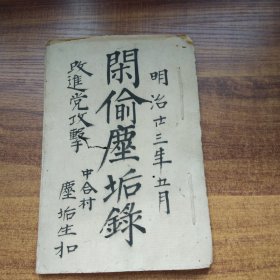 明治廿三年五月
閑偷塵垢錄
改進党攻擊
中合村
塵垢生扣